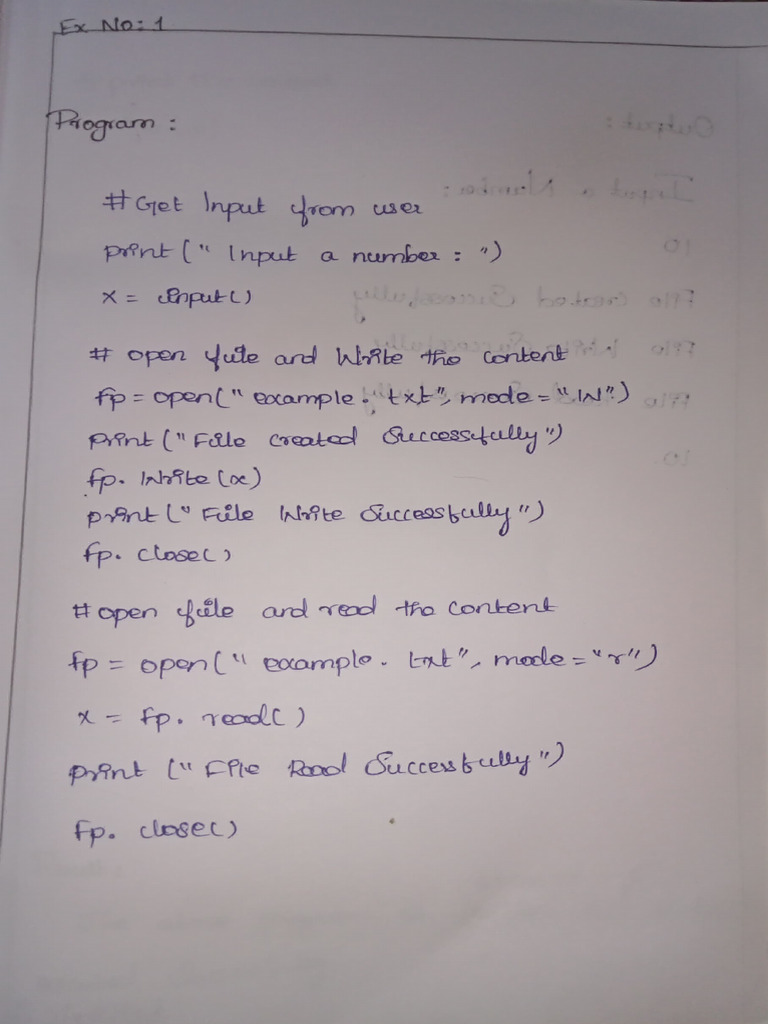 Ex No: 1
Program :
# Get Input from user
print (" Input a number : ")
x = input()
# open file and Write the content
fp = open(" example. txt", mode = "W")
print ("File created Successfully")
fp. Write (x)
print (" File Write Successfully")
fp. close()
# open file and read the content
fp = open(" example. txt", mode = "r")
x = fp. read()
print (" File Read Successfully")
fp. close()
Output :
Input a Number :
10
File created Successfully
File Write Successfully
File Successfully
10